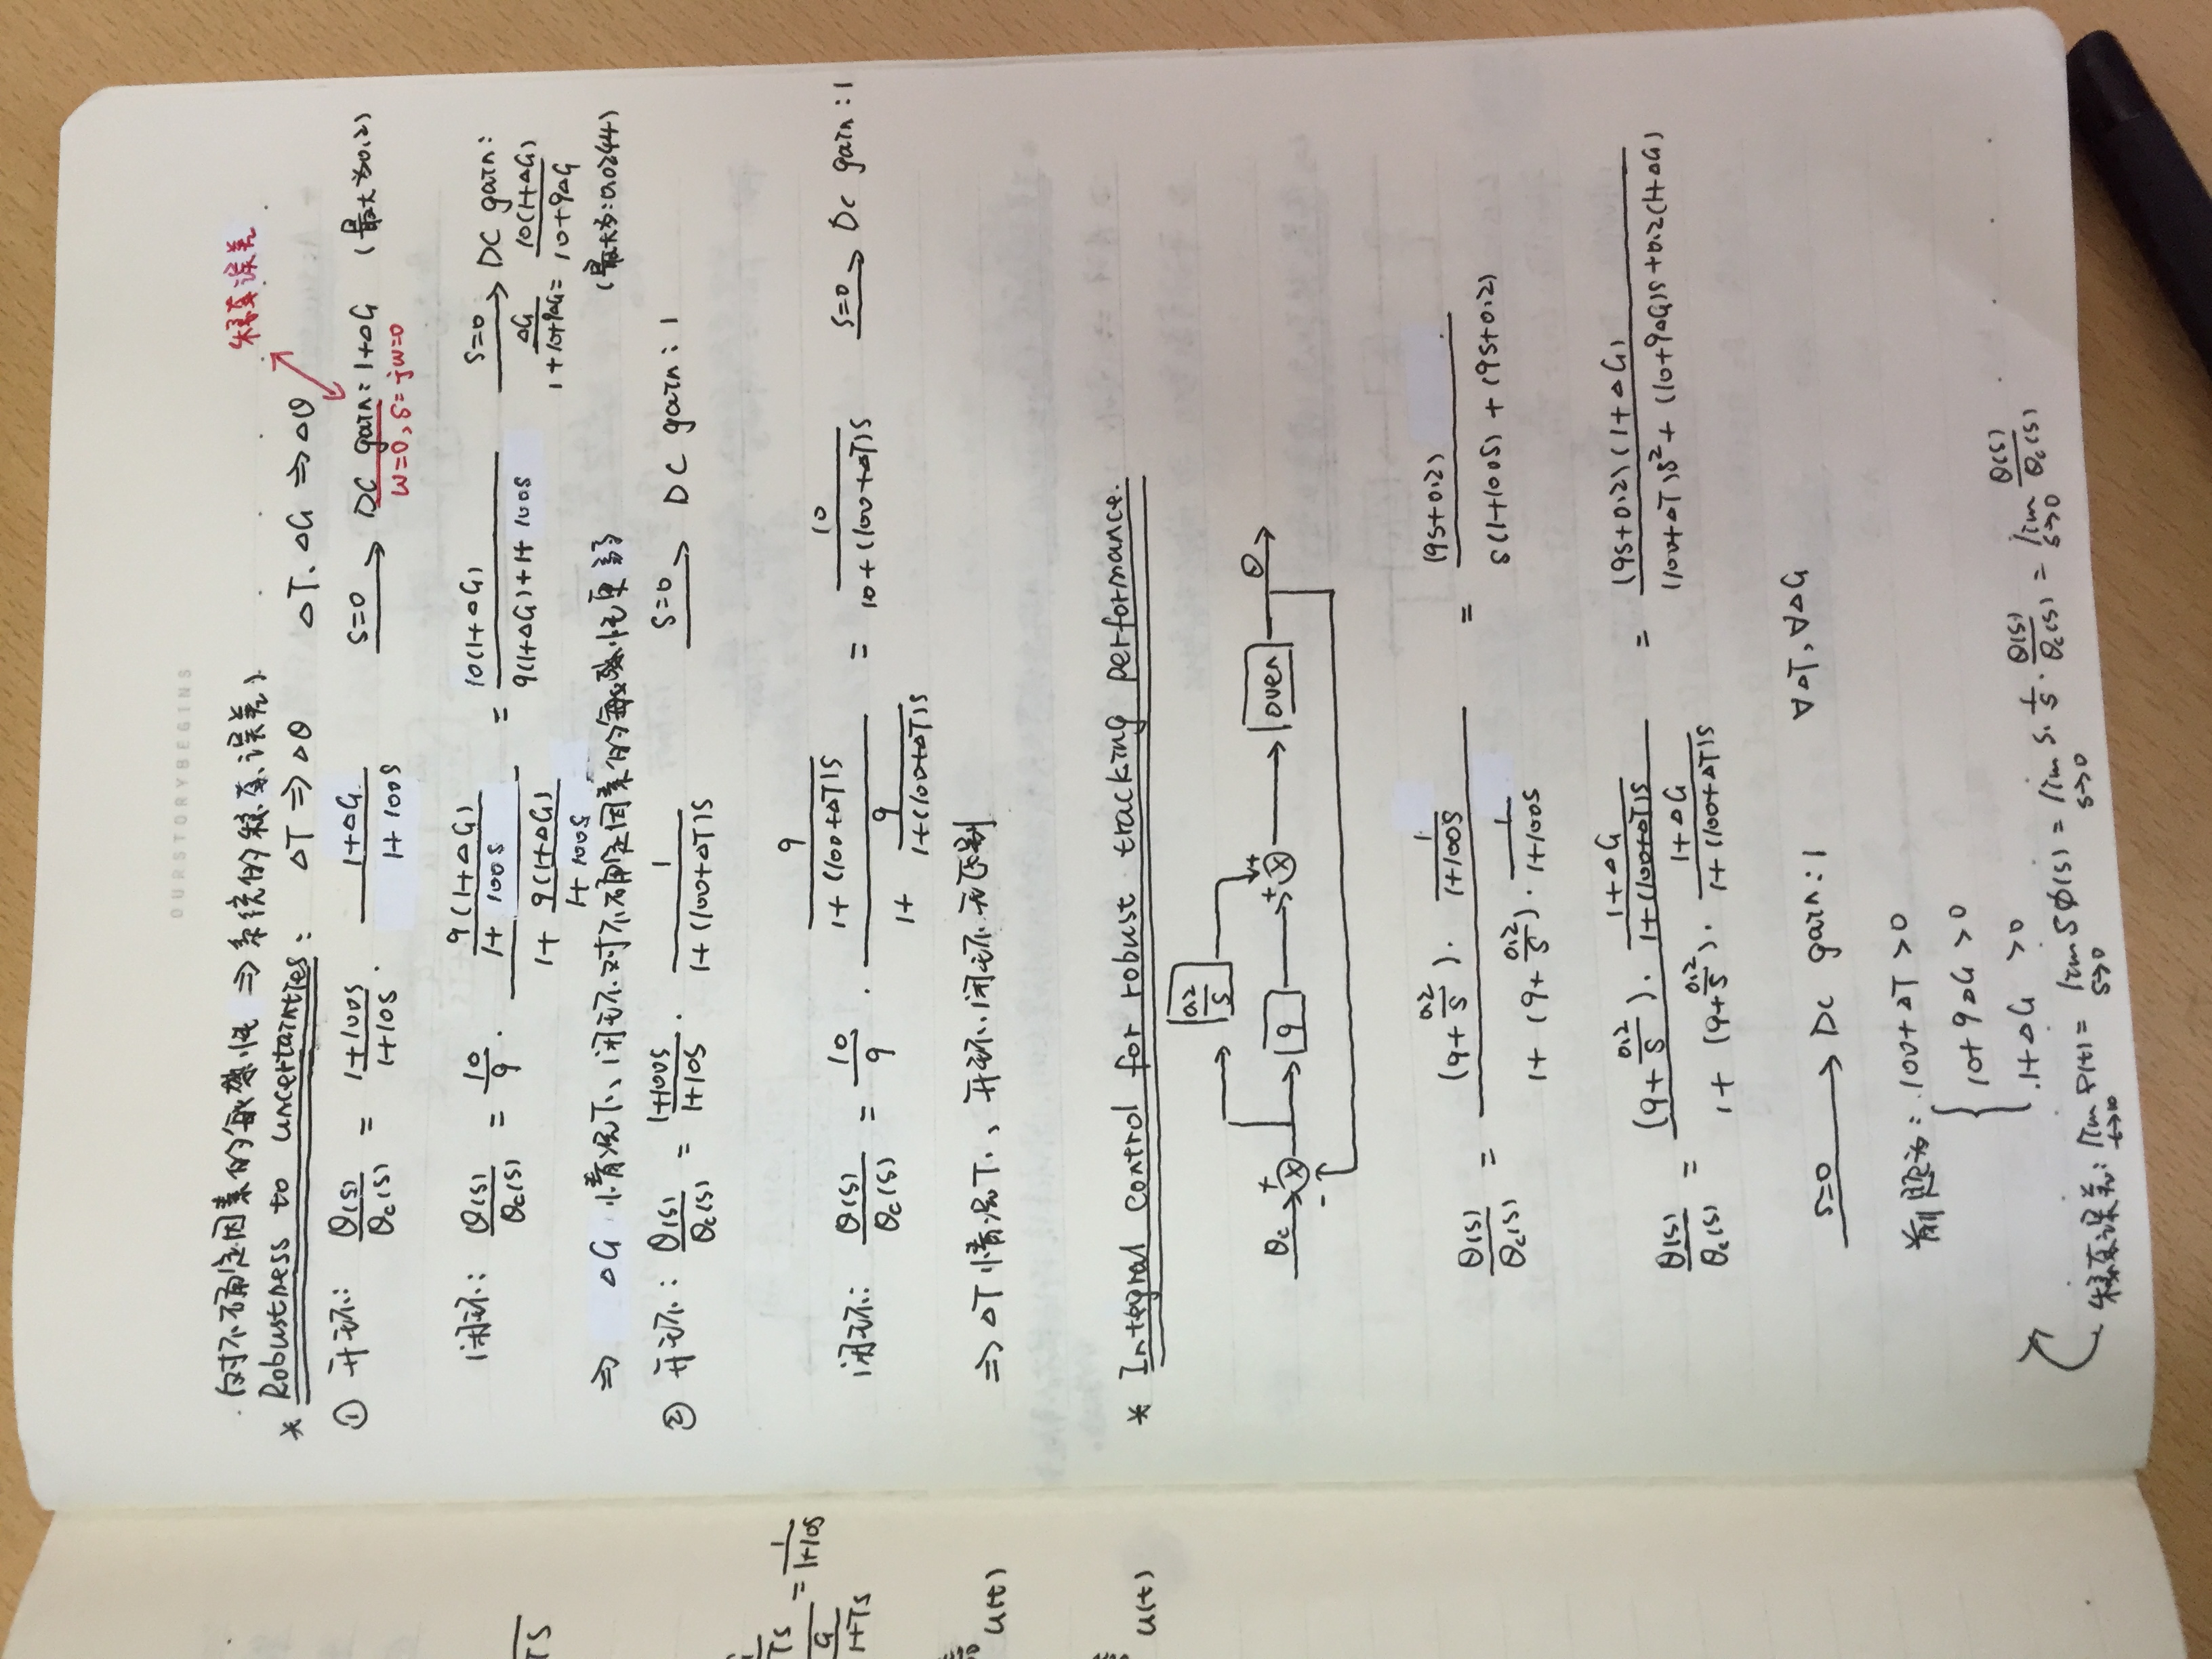 OURSTORYBEGINS
(对不确定因素的敏感性 ⇒ 系统的稳态误差)
稳态误差
* Robustness to uncertainties: ΔT ⇒ Δθ ΔT、ΔG ⇒ Δθ
① 开环: θ(s)/θc(s) = (1+100s)/(1+10s) · (1+ΔG)/(1+100s) s=0 → DC gain: 1+ΔG (最大为0.2)
ω=0, s=jω=0
闭环: θ(s)/θc(s) = 10/9 · [9(1+ΔG)/(1+100s)]/[1+9(1+ΔG)/(1+100s)] = 10(1+ΔG)/(9(1+ΔG)+1+100s) s=0 → DC gain:
ΔG/1+10+9ΔG = 10(1+ΔG)/(10+9ΔG)
⇒ ΔG 情况下、闭环对不确定因素的敏感性更弱 (最大为:0.0244)
② 开环: θ(s)/θc(s) = (1+100s)/(1+10s) · 1/(1+(100+ΔT)s) s=0 → DC gain: 1
闭环: θ(s)/θc(s) = 10/9 · [9/(1+(100+ΔT)s)]/[1+9/(1+(100+ΔT)s)] = 10/(10+(100+ΔT)s) s=0 → DC gain: 1
⇒ ΔT 情况下、开环、闭环无区别
* Integral control for robust tracking performance.
0.2/s
θc + - 9 + + oven θ
θ(s)/θc(s) = [(9+0.2/s)·1/(1+100s)]/[1+(9+0.2/s)·1/(1+100s)] = (9s+0.2)/(s(1+100s)+(9s+0.2))
θ(s)/θc(s) = [(9+0.2/s)·(1+ΔG)/(1+(100+ΔT)s)]/[1+(9+0.2/s)·(1+ΔG)/(1+(100+ΔT)s)] = (9s+0.2)(1+ΔG)/((100+ΔT)s²+(10+9ΔG)s+0.2(1+ΔG))
s=0 → DC gain: 1 ∀ΔT, ∀ΔG
前题为: 100+ΔT >0
10+9ΔG >0
1+ΔG >0
稳态误差: lim t→∞ = lim s→0 sΦ(s) = lim s→0 s·1/s·θ(s)/θc(s) = lim s→0 θ(s)/θc(s)
TS
TS = 1/1+10s
G
1+TS
u(t)
u(t)